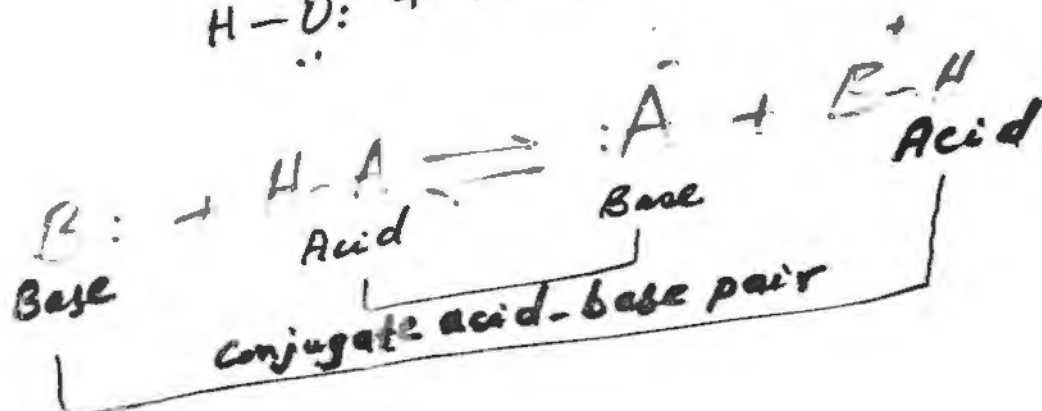 H-Ö: +
B: + H-A ⇌ :A⁻ + B⁺-H
Base Acid Base Acid
conjugate acid-base pair